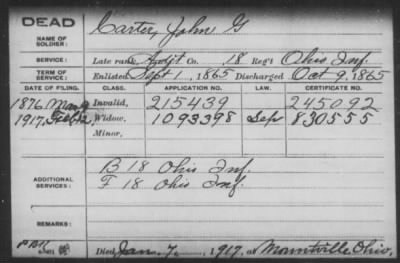 DEAD
Carter, John G
NAME OF SOLDIER:
SERVICE:
Late rank, Adjt Co. 18 Reg't Ohio Inf.
TERM OF SERVICE:
Enlisted Sept 1, 1865 Discharged Oct 9, 1865
DATE OF FILING. CLASS. APPLICATION NO. LAW. CERTIFICATE NO.
1876 Invalid, 215439 245092
1917, Widow, 1093398 Sep 830555
Minor,
ADDITIONAL SERVICES:
B 18 Ohio Inf.
F 18 Ohio Inf.
REMARKS:
Died Jan. 7, 1917, at Mountville Ohio.